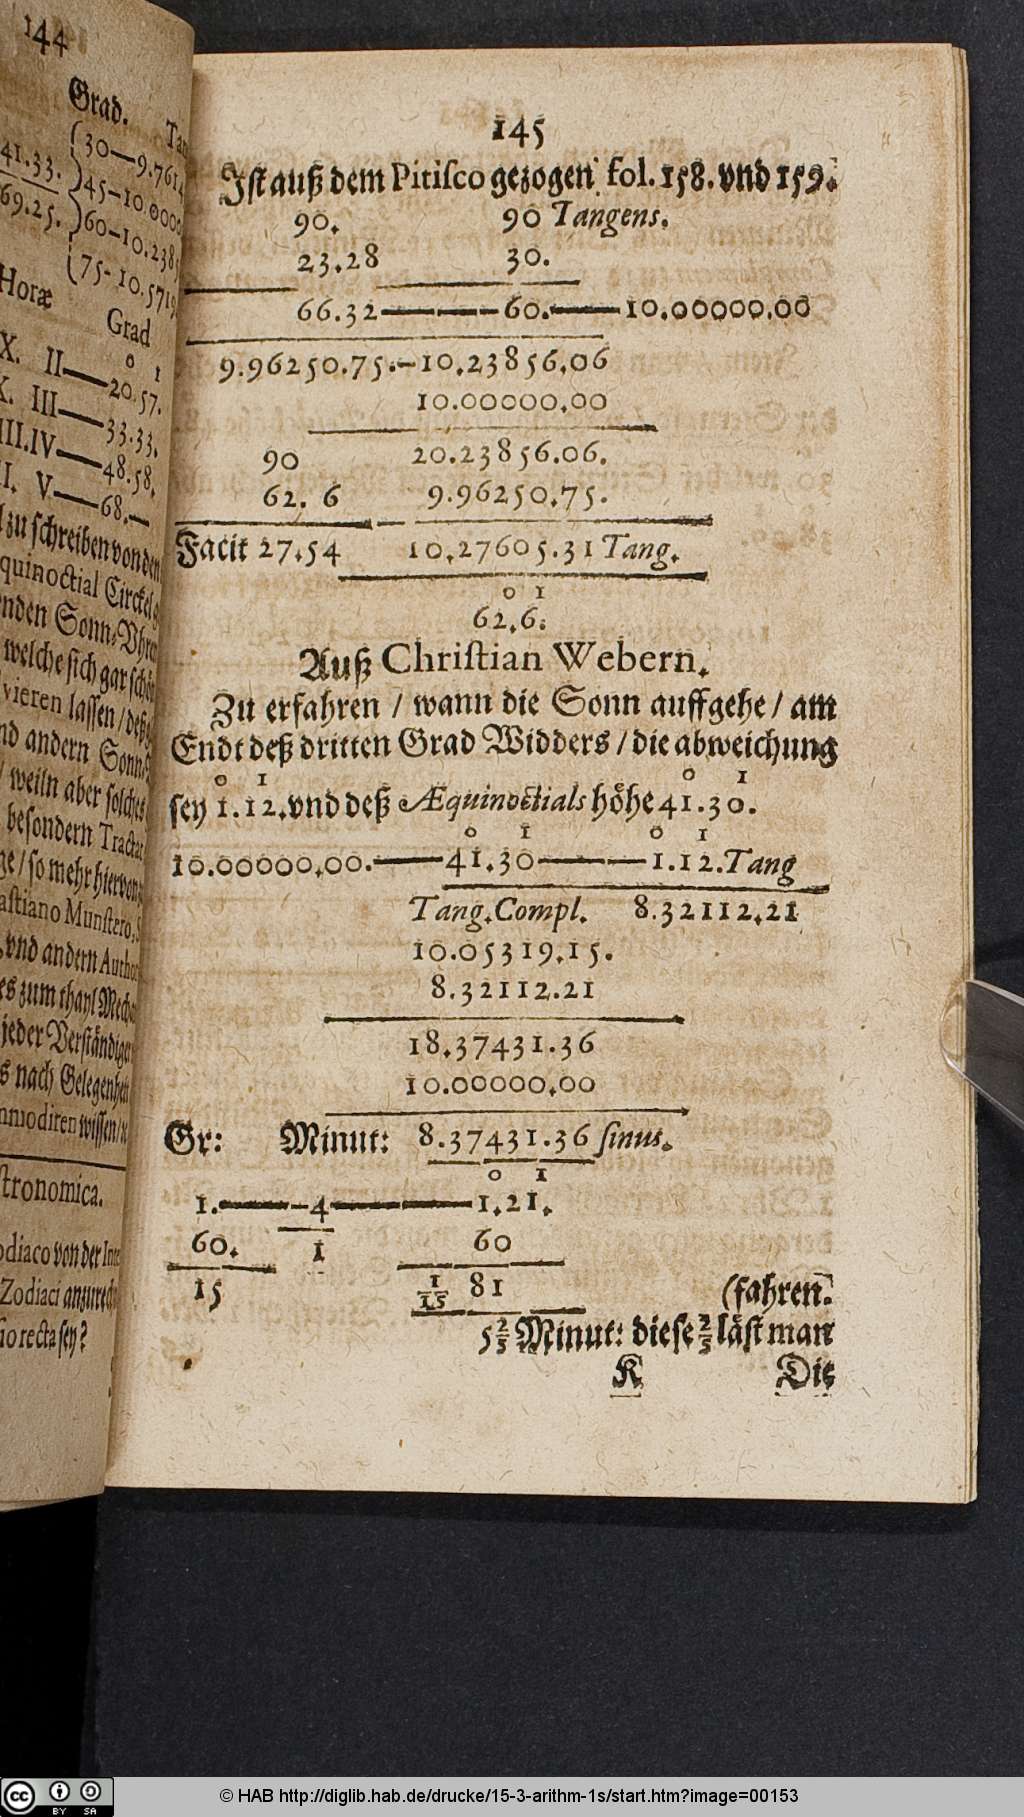 144
Grad.
41.33. 30—9.7614
69.25. 45—10.0000
60—10.238
75-10.5719
Horæ
Grad
o 1
X. II—20.57.
X. III—33.33.
III.IV—48.58.
I. V—68.—
zu schreiben von den
quinoctial Circkel
nden Sonn-Vhren
welche sich gar schön
vieren lassen / deß
nd andern Sonn-
/ weiln aber solches
besondern Tractat
ge / so mehr hiervon
astiano Munstero, S
vnd andern Author
es zum thayl Mecha
jeder Verständiger
s nach Gelegenheit
mmodiren wissen /
stronomica.
odiaco von der
Zodiaci anzurech
sio recta sey?
145
Ist auß dem Pitisco gezogen fol. 158. vnd 159.
90. 90 Tangens.
23.28 30.
66.32———60.——10.00000.00
9.96250.75.—10.23856.06
10.00000.00
90 20.23856.06.
62. 6 9.96250.75.
Facit 27.54 10.27605.31 Tang.
o 1
62.6.
Auß Christian Webern.
Zu erfahren / wann die Sonn auffgehe / am
Endt deß dritten Grad Widders / die abweichung
o 1 o 1
sey 1.12. vnd deß Æquinoctials höhe 41.30.
o 1 o 1
10.00000.00.——41.30———1.12. Tang
Tang. Compl. 8.32112.21
10.05319.15.
8.32112.21
18.37431.36
10.00000.00
Gr: Minut: 8.37431.36 sinus.
o 1
1.———4————1.21.
60. 1 60
15 1/15 81 (fahren.
5 2/5 Minut: diese 2/5 läst man
K Die
© HAB http://diglib.hab.de/drucke/15-3-arithm-1s/start.htm?image=00153
cc BY SA